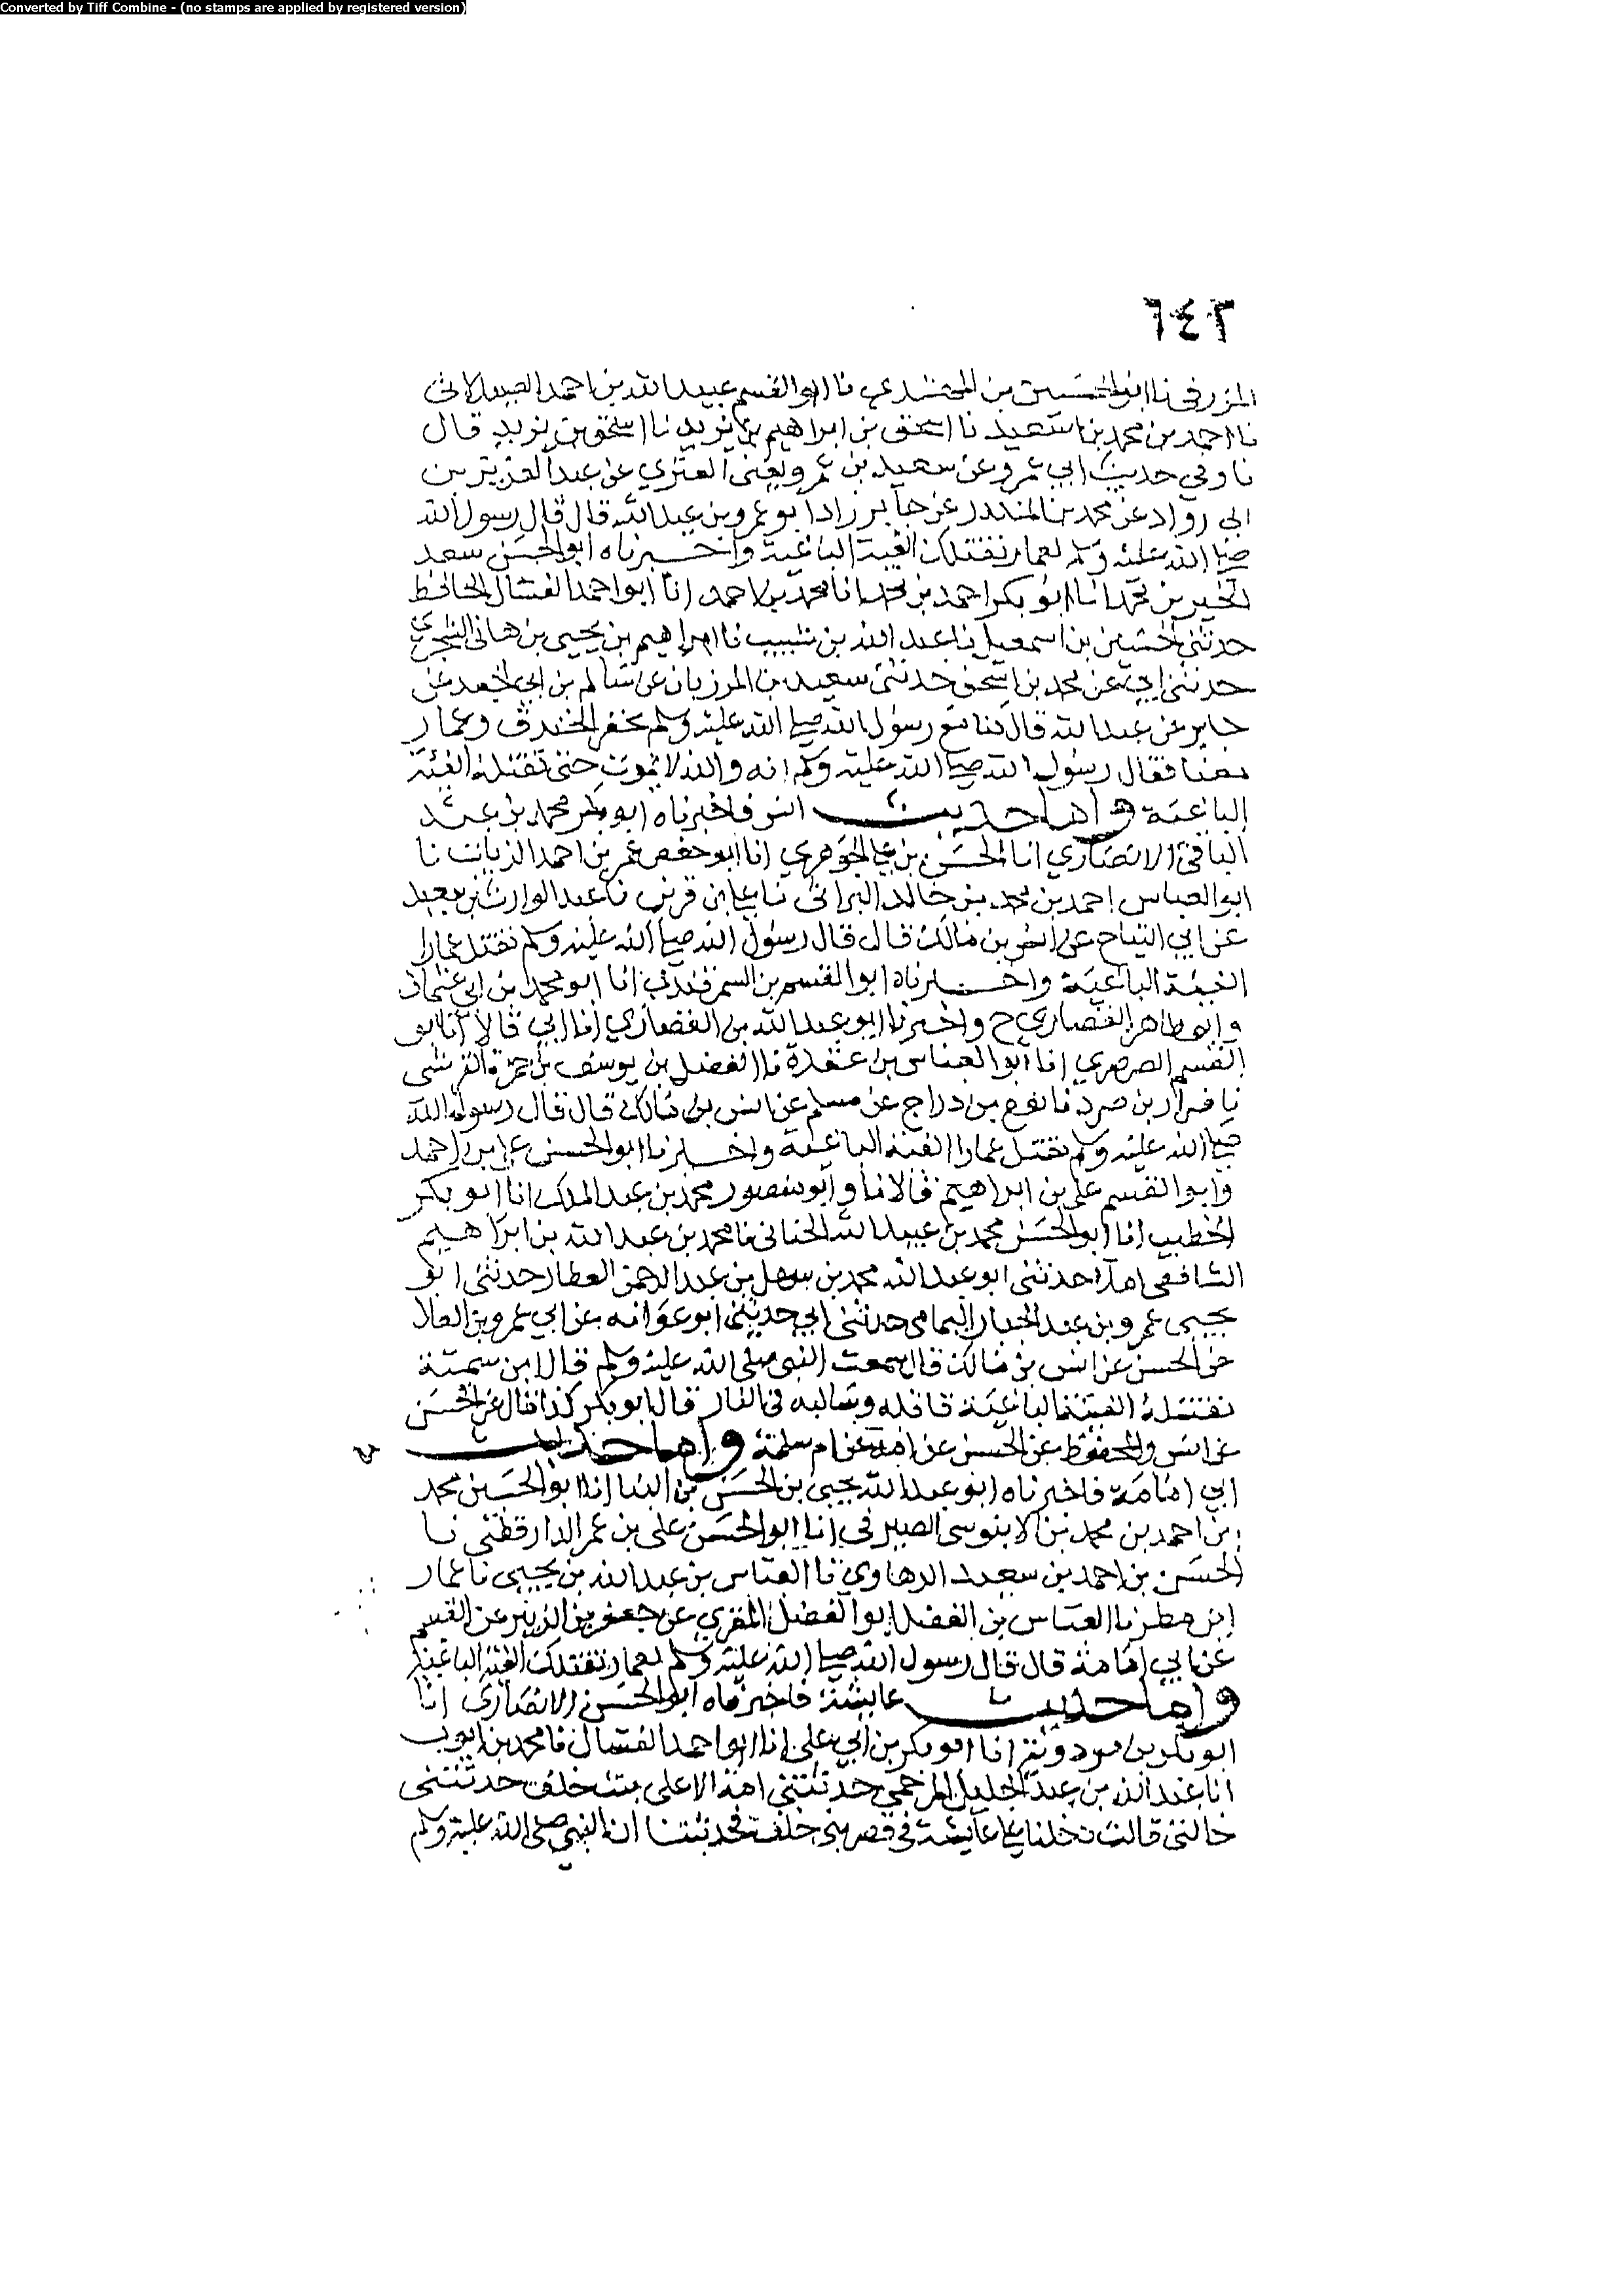 Converted by Tiff Combine - (no stamps are applied by registered version)
٦٤٣
المزرفي نا ابو الحسين بن المهتدي نا ابو القسم عبيد الله بن احمد الصيدلاني
نا احمد بن محمد بن سعيد نا اسحق بن ابراهيم بن يزيد نا اسحق بن يزيد قال
نا وفي حديث ابي عمرو عن سعيد بن عمرو يعني العنزي عن عبد العزيز بن
ابي رواد عن محمد بن المنكدر عن جابر زاد ابو عمرو بن عبد الله قال قال رسول الله
صلى الله عليه وسلم لعمار تقتلك الفية الباغية واخبرناه ابو الحسن سعد
الخير بن محمد انا ابو بكر احمد بن محمد انا محمد بن احمد انا ابو احمد العسال الحافظ
حدثني الحسين بن اسمعيل نا عبد الله بن شبيب نا ابراهيم بن يحيى بن هاني الشجري
حدثني ابي عن محمد بن اسحق حدثني سعيد بن المرزبان عن سالم بن ابي الجعد عن
جابر عن عبد الله قال كنا مع رسول الله صلى الله عليه وسلم نحفر الخندق وعمار
معنا فقال رسول الله صلى الله عليه وسلم انه والله لا يموت حتى تقتله الفئة
الباغية واما حديث انس فاخبرناه ابو بكر محمد بن عبد
الباقي الانصاري انا الحسن بن علي الجوهري انا ابو حفص عمر بن احمد الزيات نا
ابو العباس احمد بن محمد بن خالد البراثي نا علي بن قرين نا عبد الوارث بن سعيد
عن ابي التياح عن انس بن مالك قال قال رسول الله صلى الله عليه وسلم تقتل عمارا
الفئة الباغية واخبرناه ابو القسم بن السمرقندي انا ابو محمد بن ابي عثمان
وابو طاهر القصاري ح واخبرنا ابو عبد الله بن القصاري انا ابي قالا انا ابو
القسم الصرصري انا ابو العباس بن عقدة نا الفضل بن يوسف بن حمزة القرشي
نا ضرار بن صرد نا نوح بن دراج عن مسلم عن انس بن مالك قال قال رسول الله
صلى الله عليه وسلم تقتل عمارا الفئة الباغية واخبرنا ابو الحسن علي بن احمد
وابو القسم علي بن ابراهيم قالا نا وابو منصور محمد بن عبد الملك انا ابو بكر
الخطيب انا ابو الحسن محمد بن عبيد الله الحنائي نا محمد بن عبد الله بن ابراهيم
الشافعي املا حدثني ابو عبد الله محمد بن سهل بن عبد الرحمن العطار حدثني ابو
يحيى عمرو بن عبد الجبار اليمامي حدثني ابي حدثنا ابو عوانه عن ابي عمرو بن العلا
عن الحسن عن انس بن مالك قال سمعت النبي صلى الله عليه وسلم قال ابن سمية
تقتله الفئة الباغية قاتله وسالبه في النار قال ابو بكر كذا قال عن الحسن
عن انس والمحفوظ عن الحسن عن امه عن ام سلمة واما حديث
ابي امامة فاخبرناه ابو عبد الله يحيى بن الحسن بن البنا انا ابو الحسين محمد
بن احمد بن محمد بن الابنوسي الصيرفي انا ابو الحسن علي بن عمر الدارقطني نا
الحسن بن احمد بن سعيد الرهاوي نا العباس بن عبد الله بن يحيى نا عمار
ابن مطر نا العباس بن الفضل ابو الفضل المقري عن جعفر بن الزبير عن القسم
عن ابي امامة قال قال رسول الله صلى الله عليه وسلم لعمار تقتلك الفئة الباغية
واما حديث عايشة فاخبرناه ابو الحسن الانصاري انا
ابو بكر بن مردويه انا ابو بكر بن ابي علي انا ابو احمد العسال نا محمد بن ايوب
انا عبد الله بن عبد الجليل المزخمي حدثتني امة الاعلى بنت خلف حدثتني
خالتي قالت دخلنا على عايشة في قصر بني خلف فحدثتنا ان النبي صلى الله عليه وسلم